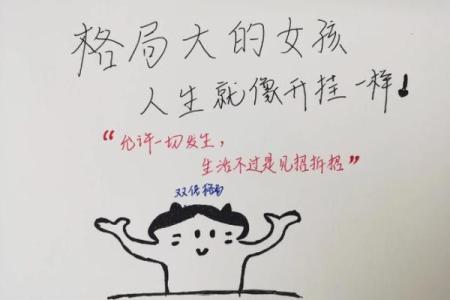 格局大的女孩
人生就像开挂一样！
“允许一切发生，
生活不过是见招拆招”
双倍格局